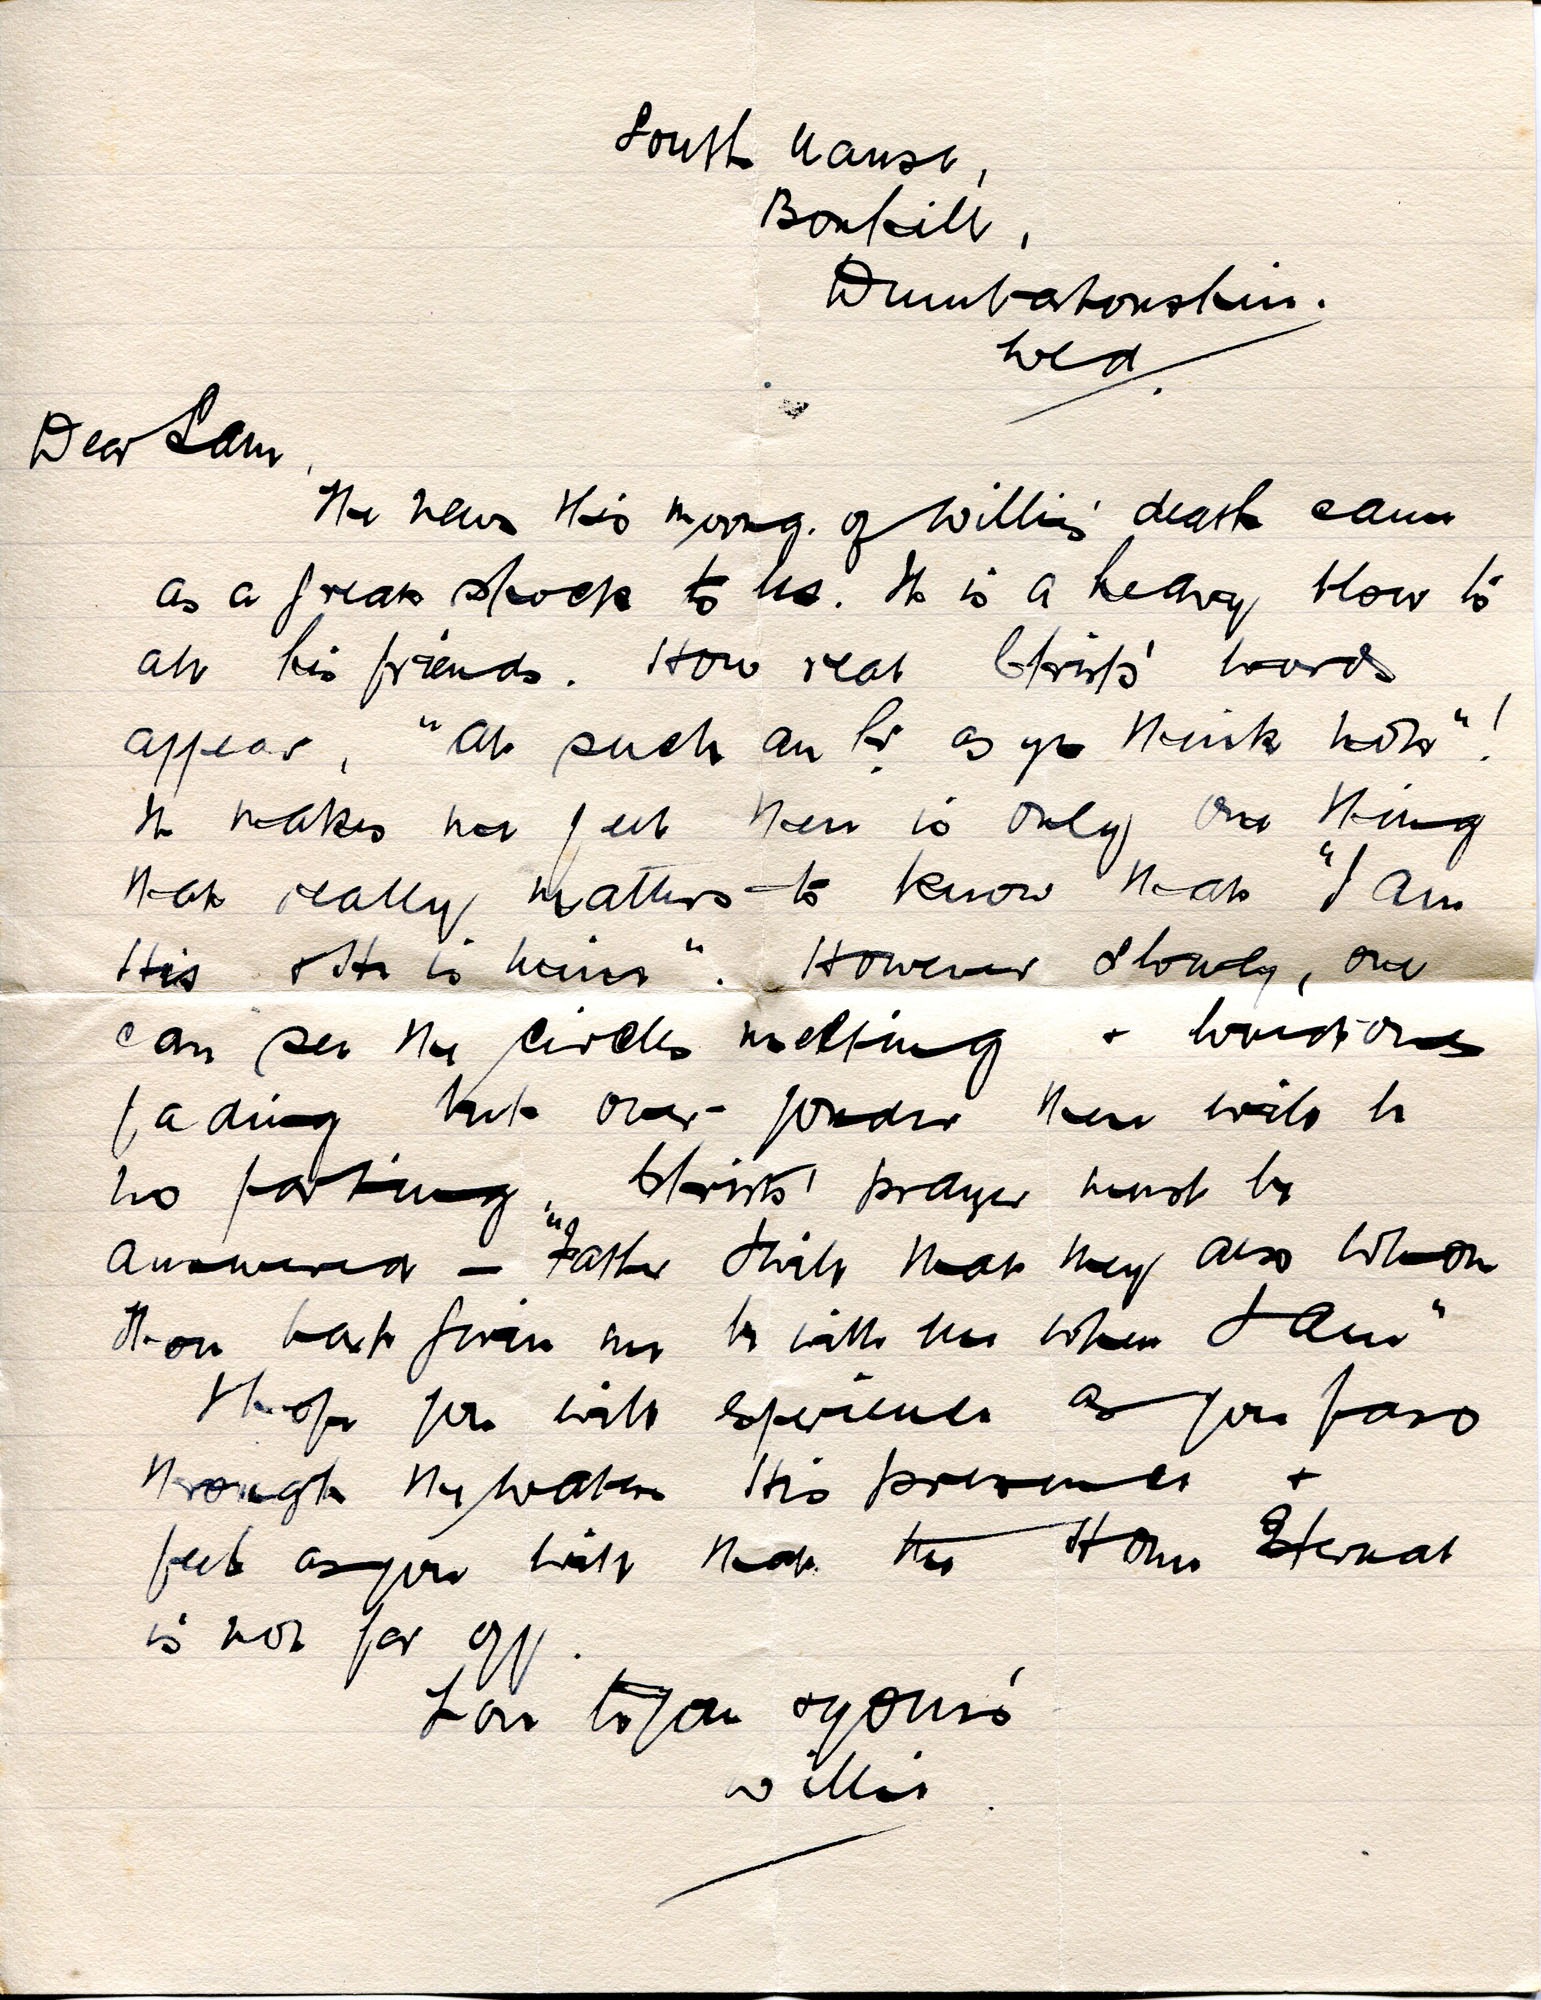 South Manse,
Bonhill,
Dumbartonshire.
Wed.
Dear Sam,
The news this morng. of Willie's death came
as a great shock to us. It is a heavy blow to
all his friends. How real Christ's words
appear, "At such an hr. as ye think not"!
It makes me feel there is only one thing
that really matters - to know that "I am
His & He is mine". However slowly, one
can see the circles melting & loved ones
fading but over yonder there will be
no parting. Christ's prayer must be
answered — "Father I will that they also whom
thou hast given me be with me where I am"
I hope you will experience as you pass
through the waters His presence &
feel as you will that the Home Eternal
is not far off.
Love to you & yours
Willie